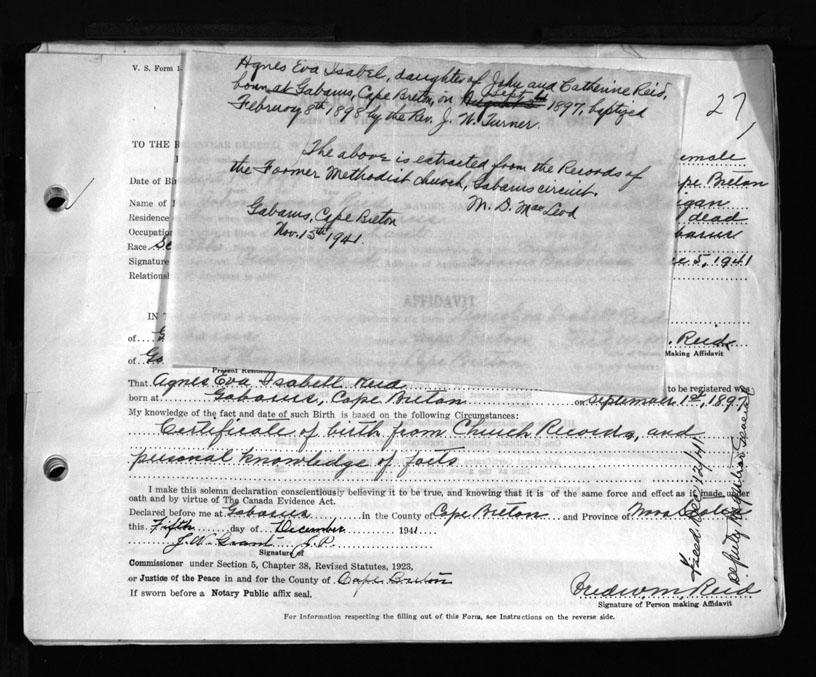 V. S. Form 1
27
Agnes Eva Isabel, daughter of John and Catherine Reid,
born at Gabarus, Cape Breton, on Sept 1st 1897, baptized
February 8th 1898 by the Rev. J. W. Turner.
The above is extracted from the Records of
the Former Methodist church, Gabarus circuit.
M. D. MacLeod
Gabarus, Cape Breton
Nov. 15th 1941.
TO THE R
emale
Date of Bi
pe Breton
Name of
gan
Residence
dead
Occupatio
barus
Race Sc
Signature
5, 1941
Relations
AFFIDAVIT
IN T
of
Reid
Making Affidavit
of Ga
Present
That Agnes Eva Isabell Reid to be registered w
born at Gabarus, Cape Breton on September 1st, 1897
My knowledge of the fact and date of such Birth is based on the following Circumstances:
Certificate of birth from Church Records, and
personal knowledge of facts
I make this solemn declaration conscientiously believing it to be true, and knowing that it is of the same force and effect as if made under
oath and by virtue of The Canada Evidence Act.
Declared before me at Gabarus in the County of Cape Breton and Province of Nova Scotia
this Fifth day of December 1941
J. W. Grant J. P.
Signature of
Commissioner under Section 5, Chapter 38, Revised Statutes, 1923,
or Justice of the Peace in and for the County of Cape Breton
If sworn before a Notary Public affix seal.
Reid
Signature of Person making Affidavit
For Information respecting the filling out of this Form, see Instructions on the reverse side.
Filed Dec. 12/41
Deputy Registrar General